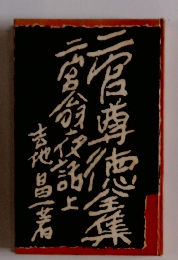 二宮尊徳全集
二宮翁夜話上
吉地昌一著